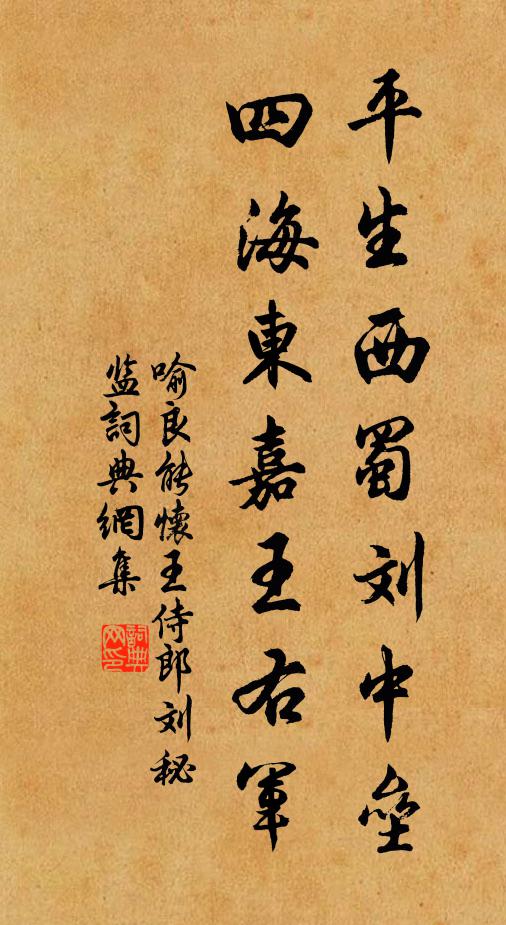 平生西蜀刘中垒
四海東嘉王右軍
喻良能懷王侍郎刘秘
监詞典網集
詞典网印